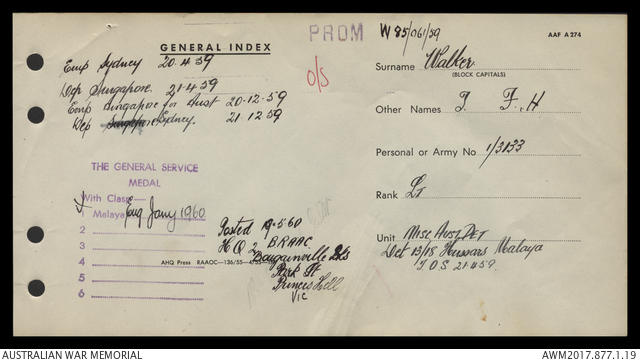 GENERAL INDEX
PROM
W 85/061/59
AAF A 274
Emp Sydney 20.4.59
Dep Singapore. 21.4.59
Emp Singapore for Aust 20-12-59
Dep Sydney. 21.12.59
O/S
Surname Walker
(BLOCK CAPITALS)
Other Names J. F. H
Personal or Army No 1/3133
Rank Lt
Unit Misc Aust Det
Det 13/18 Hussars Malaya
T.O.S 21.4.59.
THE GENERAL SERVICE
MEDAL
With Clasp—
Malaya Eng Jany 1960
2
3
4
5
6
Posted 9.5.60
H Q 2 BRAAC
Bougainville Bks
Park St
Princes Hill
Vic
AHQ Press RAAOC—136/55—
AUSTRALIAN WAR MEMORIAL
AWM2017.877.1.19